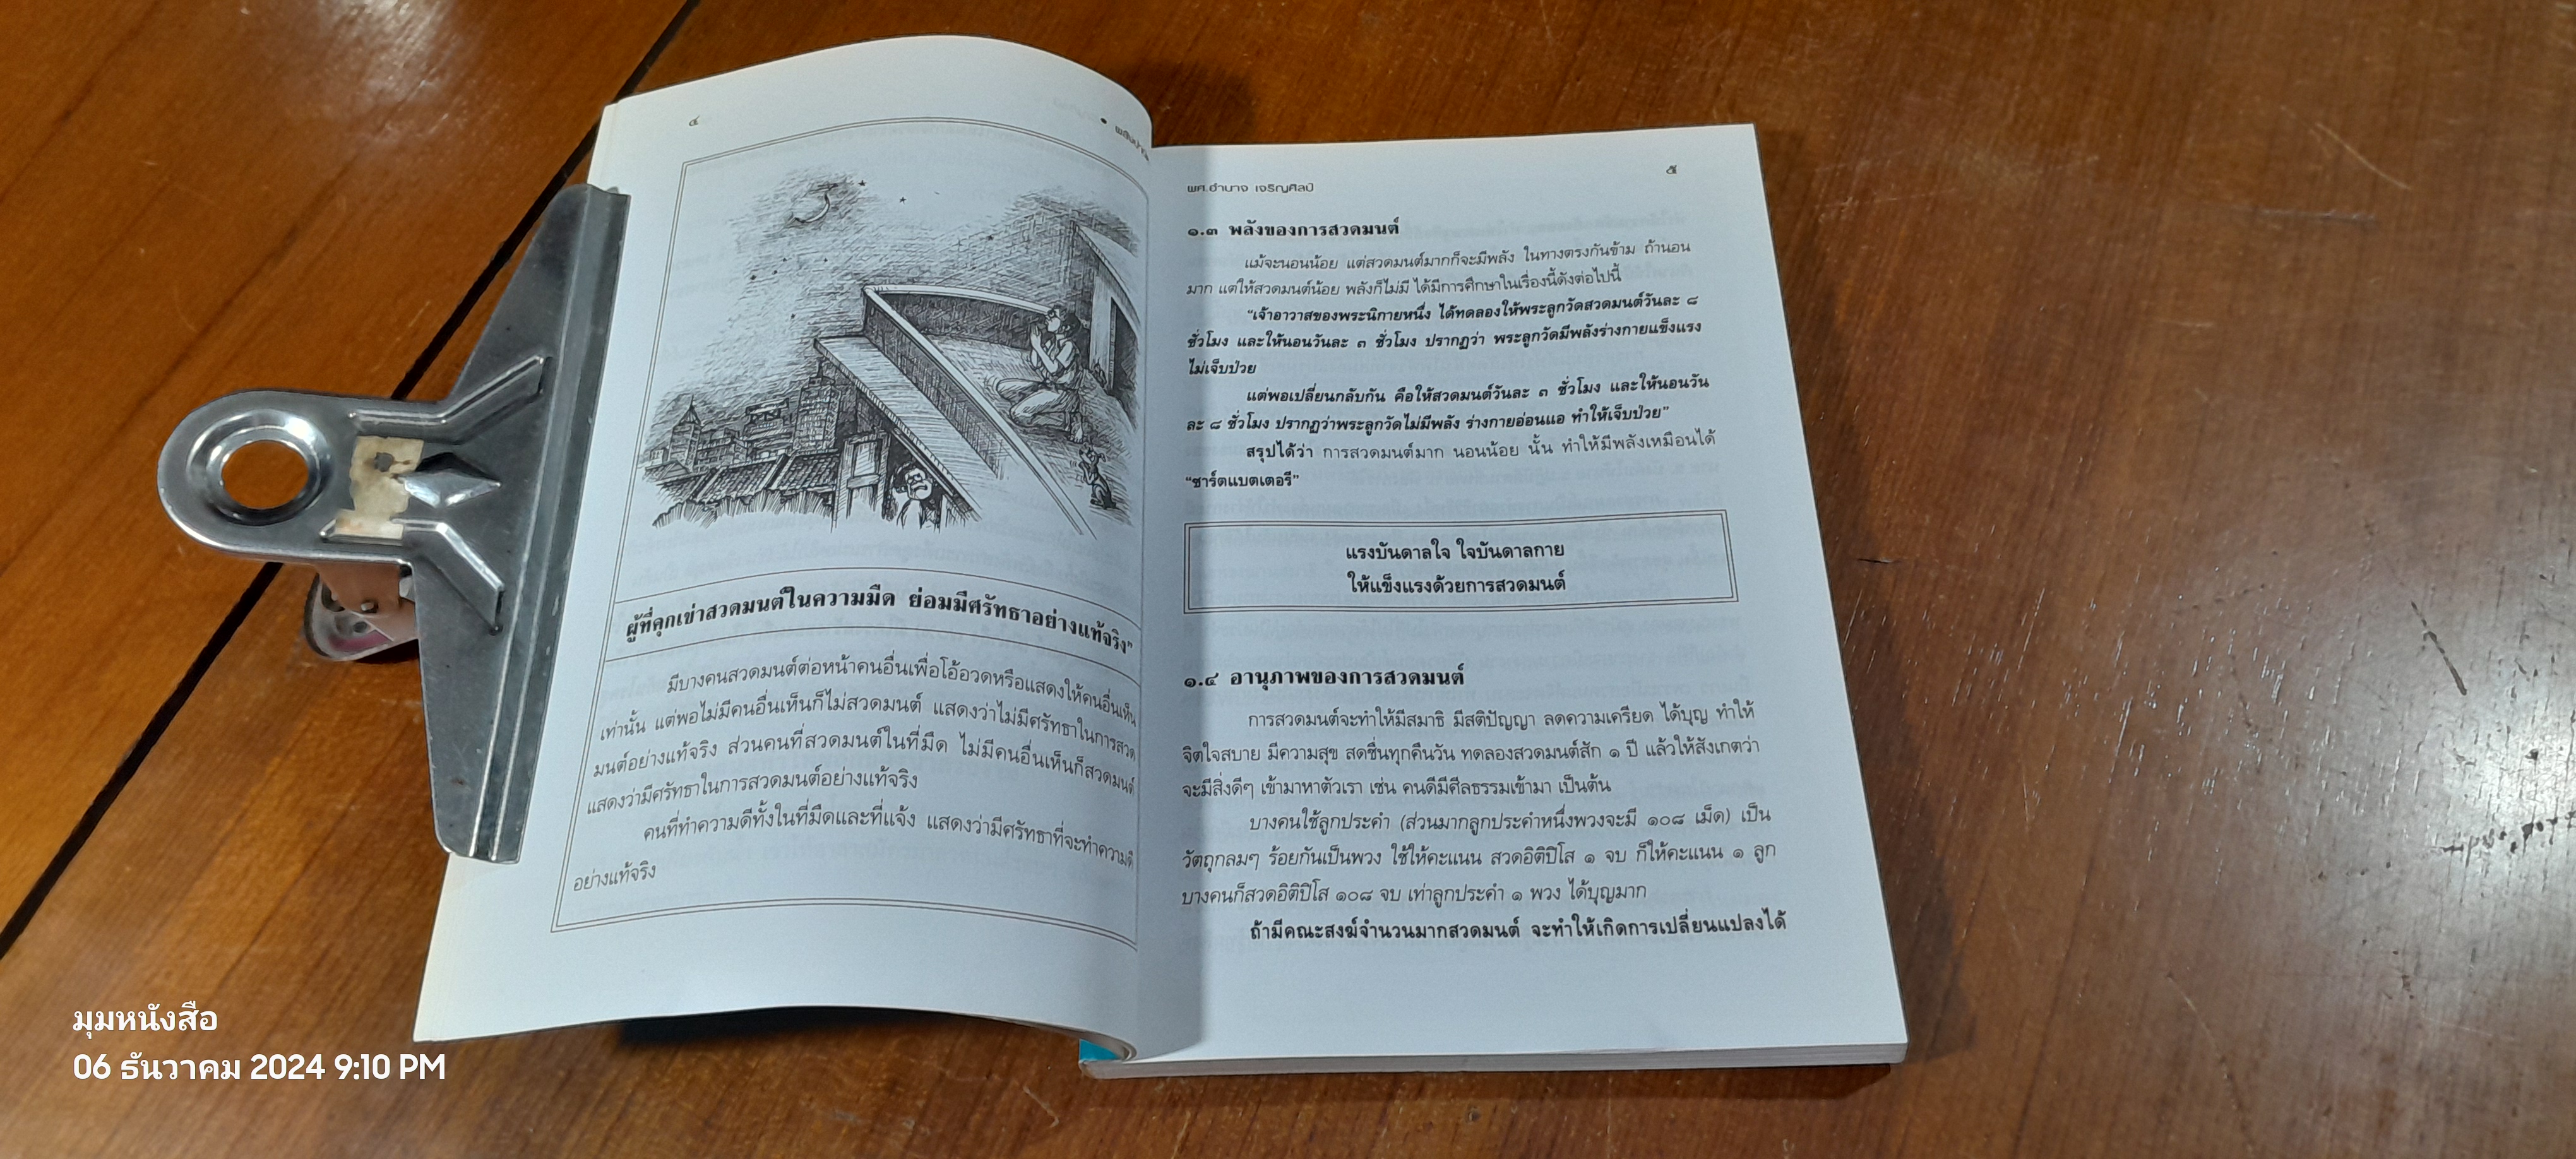 ๔
ผู้ที่คุกเข่าสวดมนต์ในความมืด ย่อมมีศรัทธาอย่างแท้จริง"
มีบางคนสวดมนต์ต่อหน้าคนอื่นเพื่อโอ้อวดหรือแสดงให้คนอื่นเห็น
เท่านั้น แต่พอไม่มีคนอื่นเห็นก็ไม่สวดมนต์ แสดงว่าไม่มีศรัทธาในการสวด
มนต์อย่างแท้จริง ส่วนคนที่สวดมนต์ในที่มืด ไม่มีคนอื่นเห็นก็สวดมนต์
แสดงว่ามีศรัทธาในการสวดมนต์อย่างแท้จริง
คนที่ทำความดีทั้งในที่มืดและที่แจ้ง แสดงว่ามีศรัทธาที่จะทำความดี
อย่างแท้จริง
ผศ.อำนาจ เจริญศิลป์
๕
๑.๓ พลังของการสวดมนต์
แม้จะนอนน้อย แต่สวดมนต์มากก็จะมีพลัง ในทางตรงกันข้าม ถ้านอน
มาก แต่ให้สวดมนต์น้อย พลังก็ไม่มี ได้มีการศึกษาในเรื่องนี้ดังต่อไปนี้
"เจ้าอาวาสของพระนิกายหนึ่ง ได้ทดลองให้พระลูกวัดสวดมนต์วันละ ๘
ชั่วโมง และให้นอนวันละ ๓ ชั่วโมง ปรากฏว่า พระลูกวัดมีพลังร่างกายแข็งแรง
ไม่เจ็บป่วย
แต่พอเปลี่ยนกลับกัน คือให้สวดมนต์วันละ ๓ ชั่วโมง และให้นอนวัน
ละ ๘ ชั่วโมง ปรากฏว่าพระลูกวัดไม่มีพลัง ร่างกายอ่อนแอ ทำให้เจ็บป่วย"
สรุปได้ว่า การสวดมนต์มาก นอนน้อย นั้น ทำให้มีพลังเหมือนได้
"ชาร์ตแบตเตอรี่"
แรงบันดาลใจ ใจบันดาลกาย
ให้แข็งแรงด้วยการสวดมนต์
๑.๔ อานุภาพของการสวดมนต์
การสวดมนต์จะทำให้มีสมาธิ มีสติปัญญา ลดความเครียด ได้บุญ ทำให้
จิตใจสบาย มีความสุข สดชื่นทุกคืนวัน ทดลองสวดมนต์สัก ๑ ปี แล้วให้สังเกตว่า
จะมีสิ่งดีๆ เข้ามาหาตัวเรา เช่น คนดีมีศีลธรรมเข้ามา เป็นต้น
บางคนใช้ลูกประคำ (ส่วนมากลูกประคำหนึ่งพวงจะมี ๑๐๘ เม็ด) เป็น
วัตถุกลมๆ ร้อยกันเป็นพวง ใช้ให้คะแนน สวดอิติปิโส ๑ จบ ก็ให้คะแนน ๑ ลูก
บางคนก็สวดอิติปิโส ๑๐๘ จบ เท่าลูกประคำ ๑ พวง ได้บุญมาก
ถ้ามีคณะสงฆ์จำนวนมากสวดมนต์ จะทำให้เกิดการเปลี่ยนแปลงได้
มุมหนังสือ
06 ธันวาคม 2024 9:10 PM